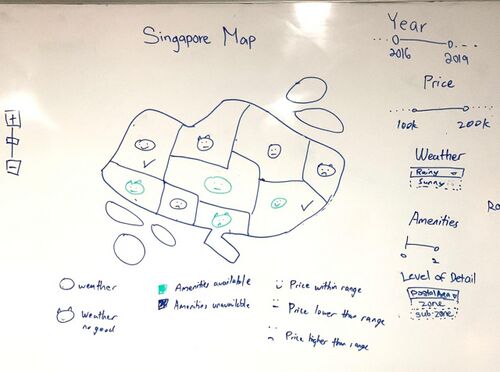 Singapore Map
Year
2016 2019
Price
100k 200k
Weather
Rainy
Sunny
Amenities
0 2
Level of Detail
Postal Area
zone
sub-zone
+
-
weather
Weather
no good
Amenities available
Amenities unavailable
Price within range
Price lower than range
Price higher than range